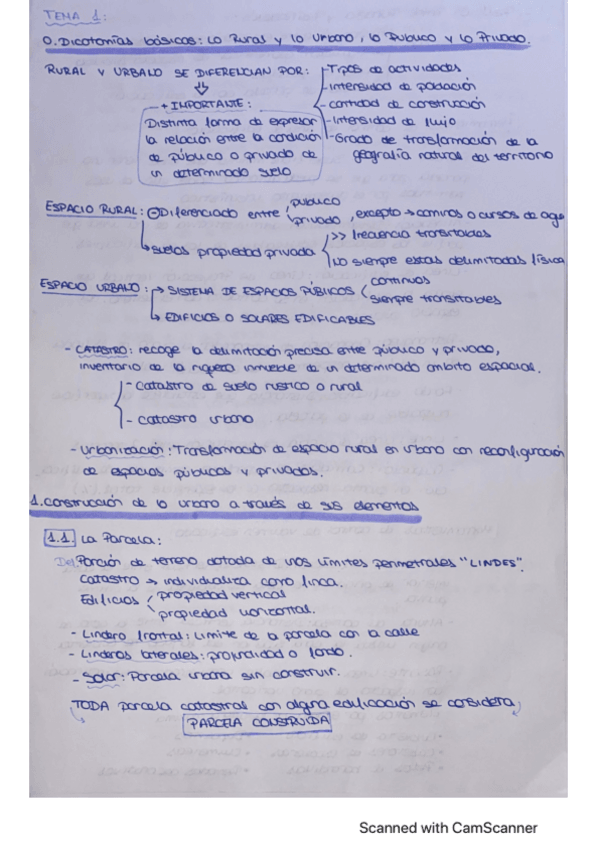 TEMA 1:
0. Dicotomías básicas: Lo Rural y lo Urbano, lo Publico y lo Privado.
RURAL Y URBANO SE DIFERENCIAN POR: - Tipos de actividades
- Intensidad de población
- cantidad de construcción
- Intensidad de flujo
- Grado de transformación de la
geografía natural del territorio
+ IMPORTANTE:
Distinta forma de expresar
la relación entre la condición
de público o privado de
un determinado suelo
ESPACIO RURAL: Diferenciado entre publico
privado, excepto → caminos o cursos de agu
suelos propiedad privada >> frecuencia transitadas
No siempre estas delimitadas física
ESPACIO URBANO: → SISTEMA DE ESPACIOS PÚBLICOS continuos
siempre transitables
EDIFICIOS O SOLARES EDIFICABLES
- CATASTRO: recoge la delimitación precisa entre público y privado,
inventario de la riqueza inmueble de un determinado ambito espacial.
- Catastro de suelo rustico o rural
- catastro urbano
- Urbanización: Transformación de espacio rural en urbano con reconfiguración
de espacios públicos y privados.
1. Construcción de lo urbano a través de sus elementos
1.1. La Parcela:
Def Porción de terreno dotada de unos límites perimetrales "LINDES".
Catastro → individualiza como finca.
Edificios propiedad vertical
propiedad horizontal.
- Lindero frontal: Limite de la parcela con la calle
- Linderos laterales: profundidad o fondo.
- Solar: Parcela urbana sin construir.
TODA parcela catastral con alguna edificación se considera
PARCELA CONSTRUIDA
Scanned with CamScanner